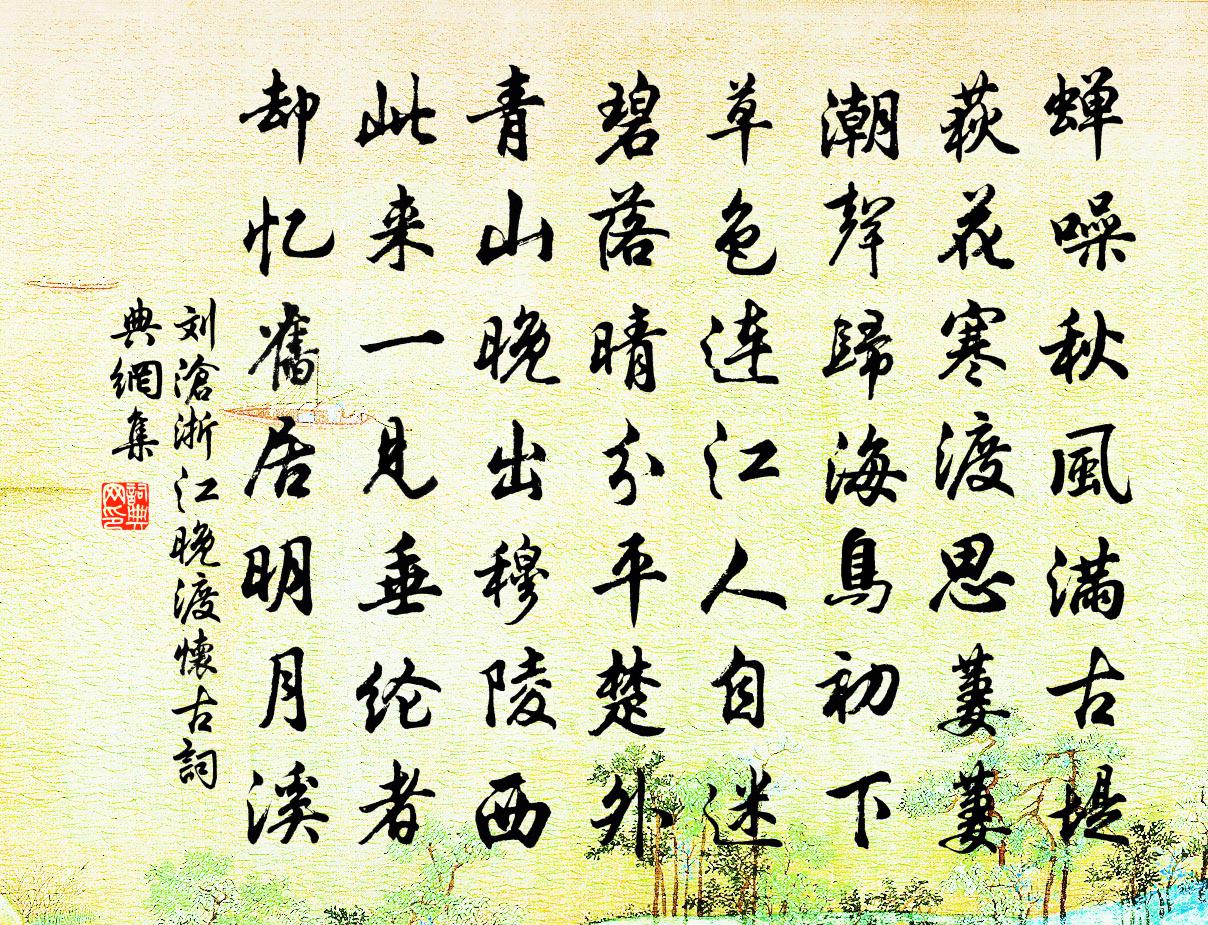 蝉噪秋風满古堤
萩花寒渡思萋萋
潮聲歸海鳥初下
草色連江人自迷
碧落晴分平楚外
青山晚出穆陵西
此来一見垂纶者
却忆舊居明月溪
刘滄浙江晚渡懷古詞
典網集
詞典
网印